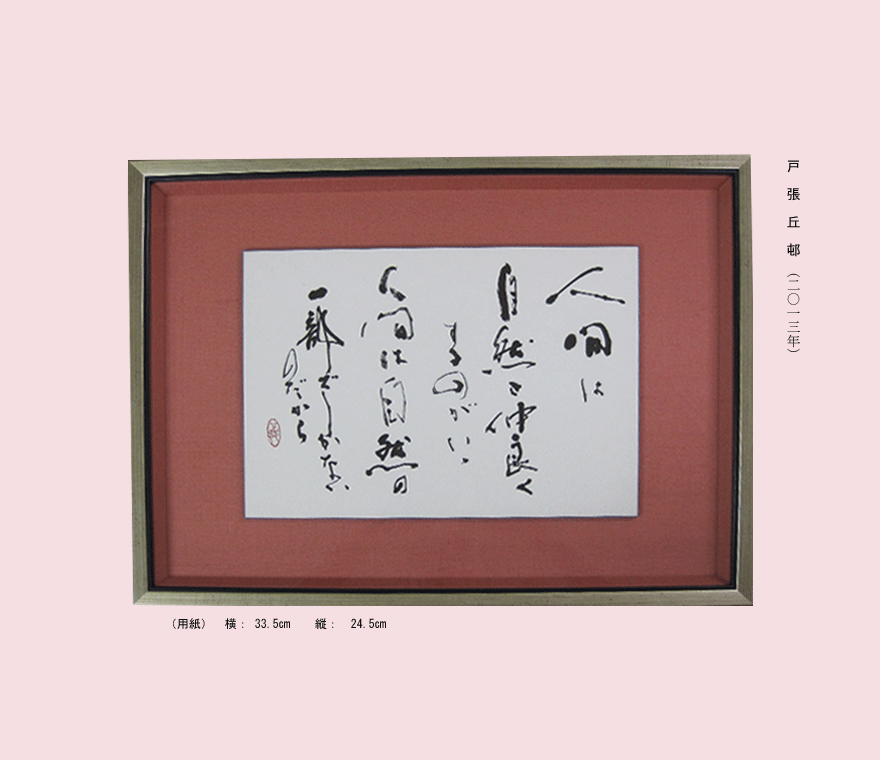 人間は
自然と仲良く
するのがいい
人間は自然の
一部でしかない
のだから
戸張丘邨(二〇一三年)
(用紙) 横: 33.5cm 縦: 24.5cm